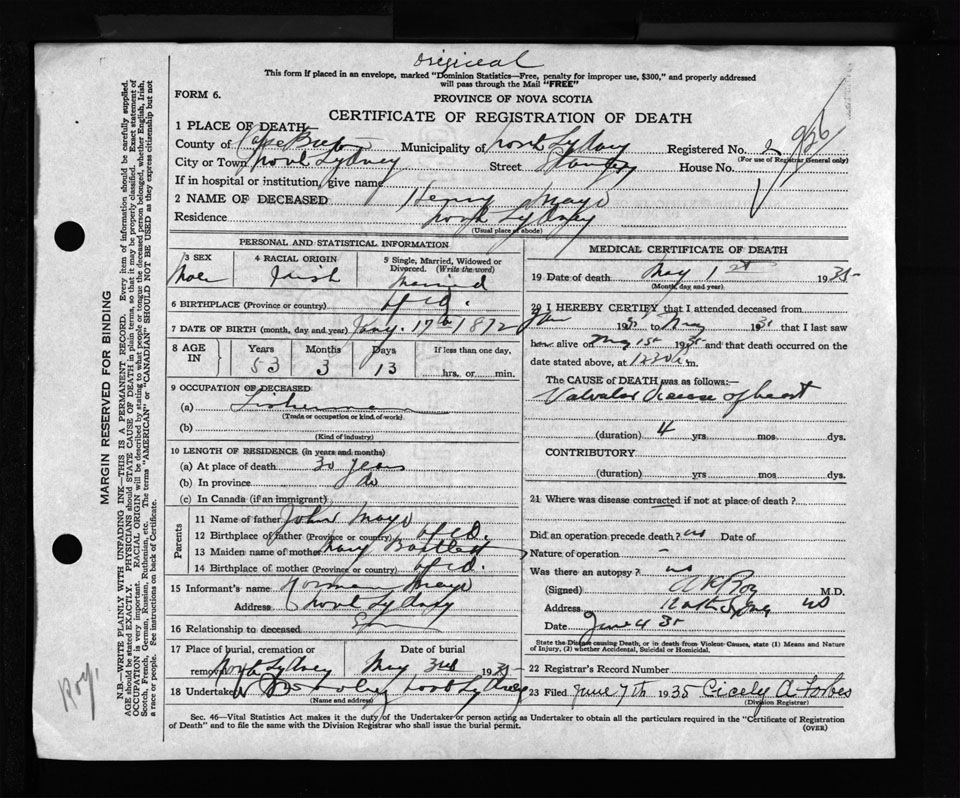 original
This form if placed in an envelope, marked "Dominion Statistics—Free, penalty for improper use, $300," and properly addressed
will pass through the Mail "FREE"
FORM 6.
PROVINCE OF NOVA SCOTIA
CERTIFICATE OF REGISTRATION OF DEATH
1 PLACE OF DEATH
County of Cape Breton Municipality of North Sydney Registered No.
(For use of Registrar General only)
City or Town North Sydney Street House No.
If in hospital or institution, give name
2 NAME OF DECEASED Henry Mayo
Residence North Sydney
(Usual place of abode)
PERSONAL AND STATISTICAL INFORMATION
3 SEX 4 RACIAL ORIGIN 5 Single, Married, Widowed or
Divorced. (Write the word)
Male Irish Married
6 BIRTHPLACE (Province or country) Nfld.
7 DATE OF BIRTH (month, day and year) 17th 1872
8 AGE IN Years Months Days If less than one day,
53 3 13 hrs. or min.
9 OCCUPATION OF DECEASED
(a) Fisherman
(Trade or occupation or kind of work)
(b)
(Kind of industry)
10 LENGTH OF RESIDENCE (in years and months)
(a) At place of death 30 years
(b) In province do
(c) In Canada (if an immigrant)
Parents
11 Name of father John Mayo
12 Birthplace of father (Province or country) Nfld.
13 Maiden name of mother Mary Bartlett
14 Birthplace of mother (Province or country) Nfld.
15 Informant's name Norman Mayo
Address North Sydney
16 Relationship to deceased Son
17 Place of burial, cremation or Date of burial
removal North Sydney May 3rd 1935
18 Undertaker North Sydney
(Name and address)
MEDICAL CERTIFICATE OF DEATH
19 Date of death May 1st 1935
(Month, day and year)
20 I HEREBY CERTIFY that I attended deceased from
19 to May 19 that I last saw
h alive on May 1st 1935 and that death occurred on the
date stated above, at m.
The CAUSE of DEATH was as follows:—
Valvular Disease of heart
(duration) 4 yrs mos dys.
CONTRIBUTORY
(duration) yrs mos dys.
21 Where was disease contracted if not at place of death?
Did an operation precede death? no Date of
Nature of operation –
Was there an autopsy? no
(Signed) M.D.
Address North Sydney NS
Date June 4 35
State the Disease causing Death, or in death from Violent Causes, state (1) Means and Nature
of Injury, (2) whether Accidental, Suicidal or Homicidal.
22 Registrar's Record Number
23 Filed June 7th 1935 Cicely A. Forbes
(Division Registrar)
Sec. 46—Vital Statistics Act makes it the duty of the Undertaker or person acting as Undertaker to obtain all the particulars required in the "Certificate of Registration
of Death" and to file the same with the Division Registrar who shall issue the burial permit.
(OVER)
MARGIN RESERVED FOR BINDING
N.B.—WRITE PLAINLY WITH UNFADING INK—THIS IS A PERMANENT RECORD. Every item of information should be carefully supplied.
AGE should be stated EXACTLY. PHYSICIANS should STATE CAUSE OF DEATH in plain terms, so that it may be properly classified. Exact statement of
OCCUPATION is very important. RACIAL ORIGIN will be described by stating to what people or tongue the deceased person belonged, whether English, Irish,
Scotch, French, German, Russian, Ruthenian, etc. The terms "AMERICAN" or "CANADIAN" SHOULD NOT BE USED as they express citizenship but not
a race or people. See instructions on back of Certificate.
Roy.